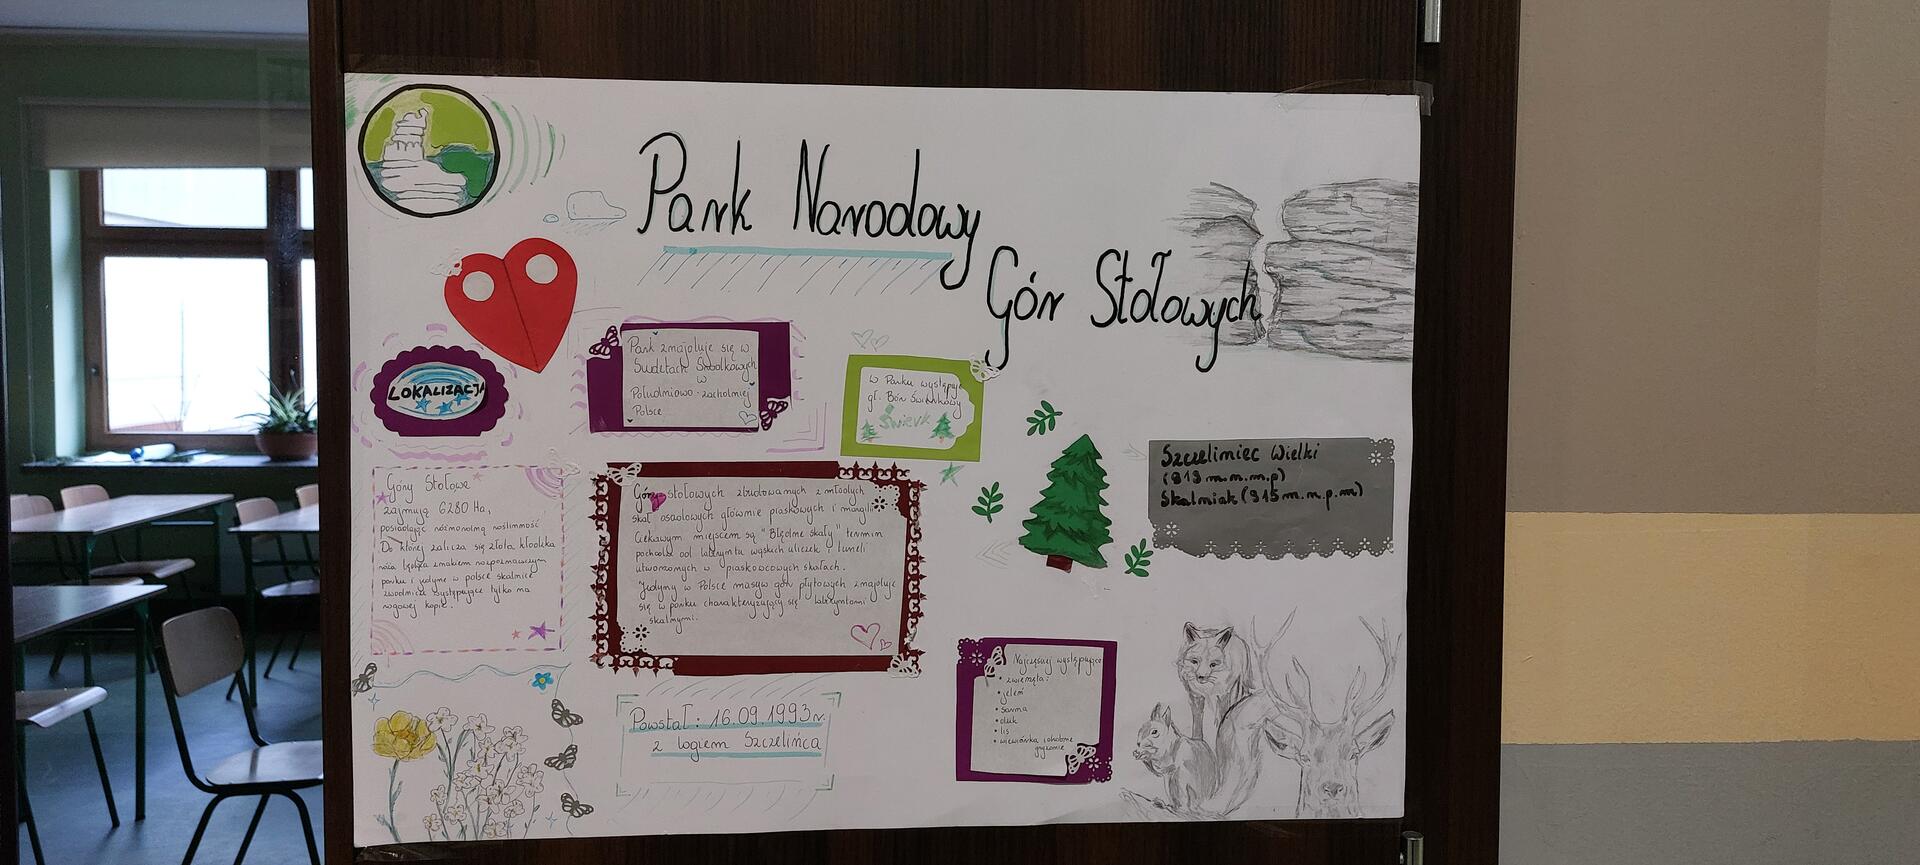 Park Narodowy
Gór Stołowych
LOKALIZACJA
Park znajduje się w
Sudetach Środkowych
w
Południowo-zachodniej
Polsce
w Parku występuje
gł. Bór świerkowy
Świerk
Szczeliniec Wielki
(919 m.n.m.p)
Skalniak (915 m.n.p.m)
Góry Stołowe
zajmują 6280 Ha,
posiadając różnorodną roślinność
Do której zalicza się złota kłódka
będąca znakiem rozpoznawczym
parku i jedyne w polsce skalnice
zwodnicze występujące tylko na
rogowej kopie.
Góry stołowych zbudowanych z młodych
skał osadowych głównie piaskowych i margli
Ciekawym miejscem są "Błędne skały" termin
pochodzi od labiryntu wąskich uliczek i tuneli
utworzonych w piaskowcowych skałach.
Jedyny w Polsce masyw gór płytowych znajduje
się w parku charakteryzujący się labiryntami
skalnymi.
Powstał: 16.09.1993r.
z logiem Szczelińca
Najczęściej występujące
• zwierzęta:
• jeleń
• sarna
• dzik
• lis
• wiewiórka i drobne
gryzonie